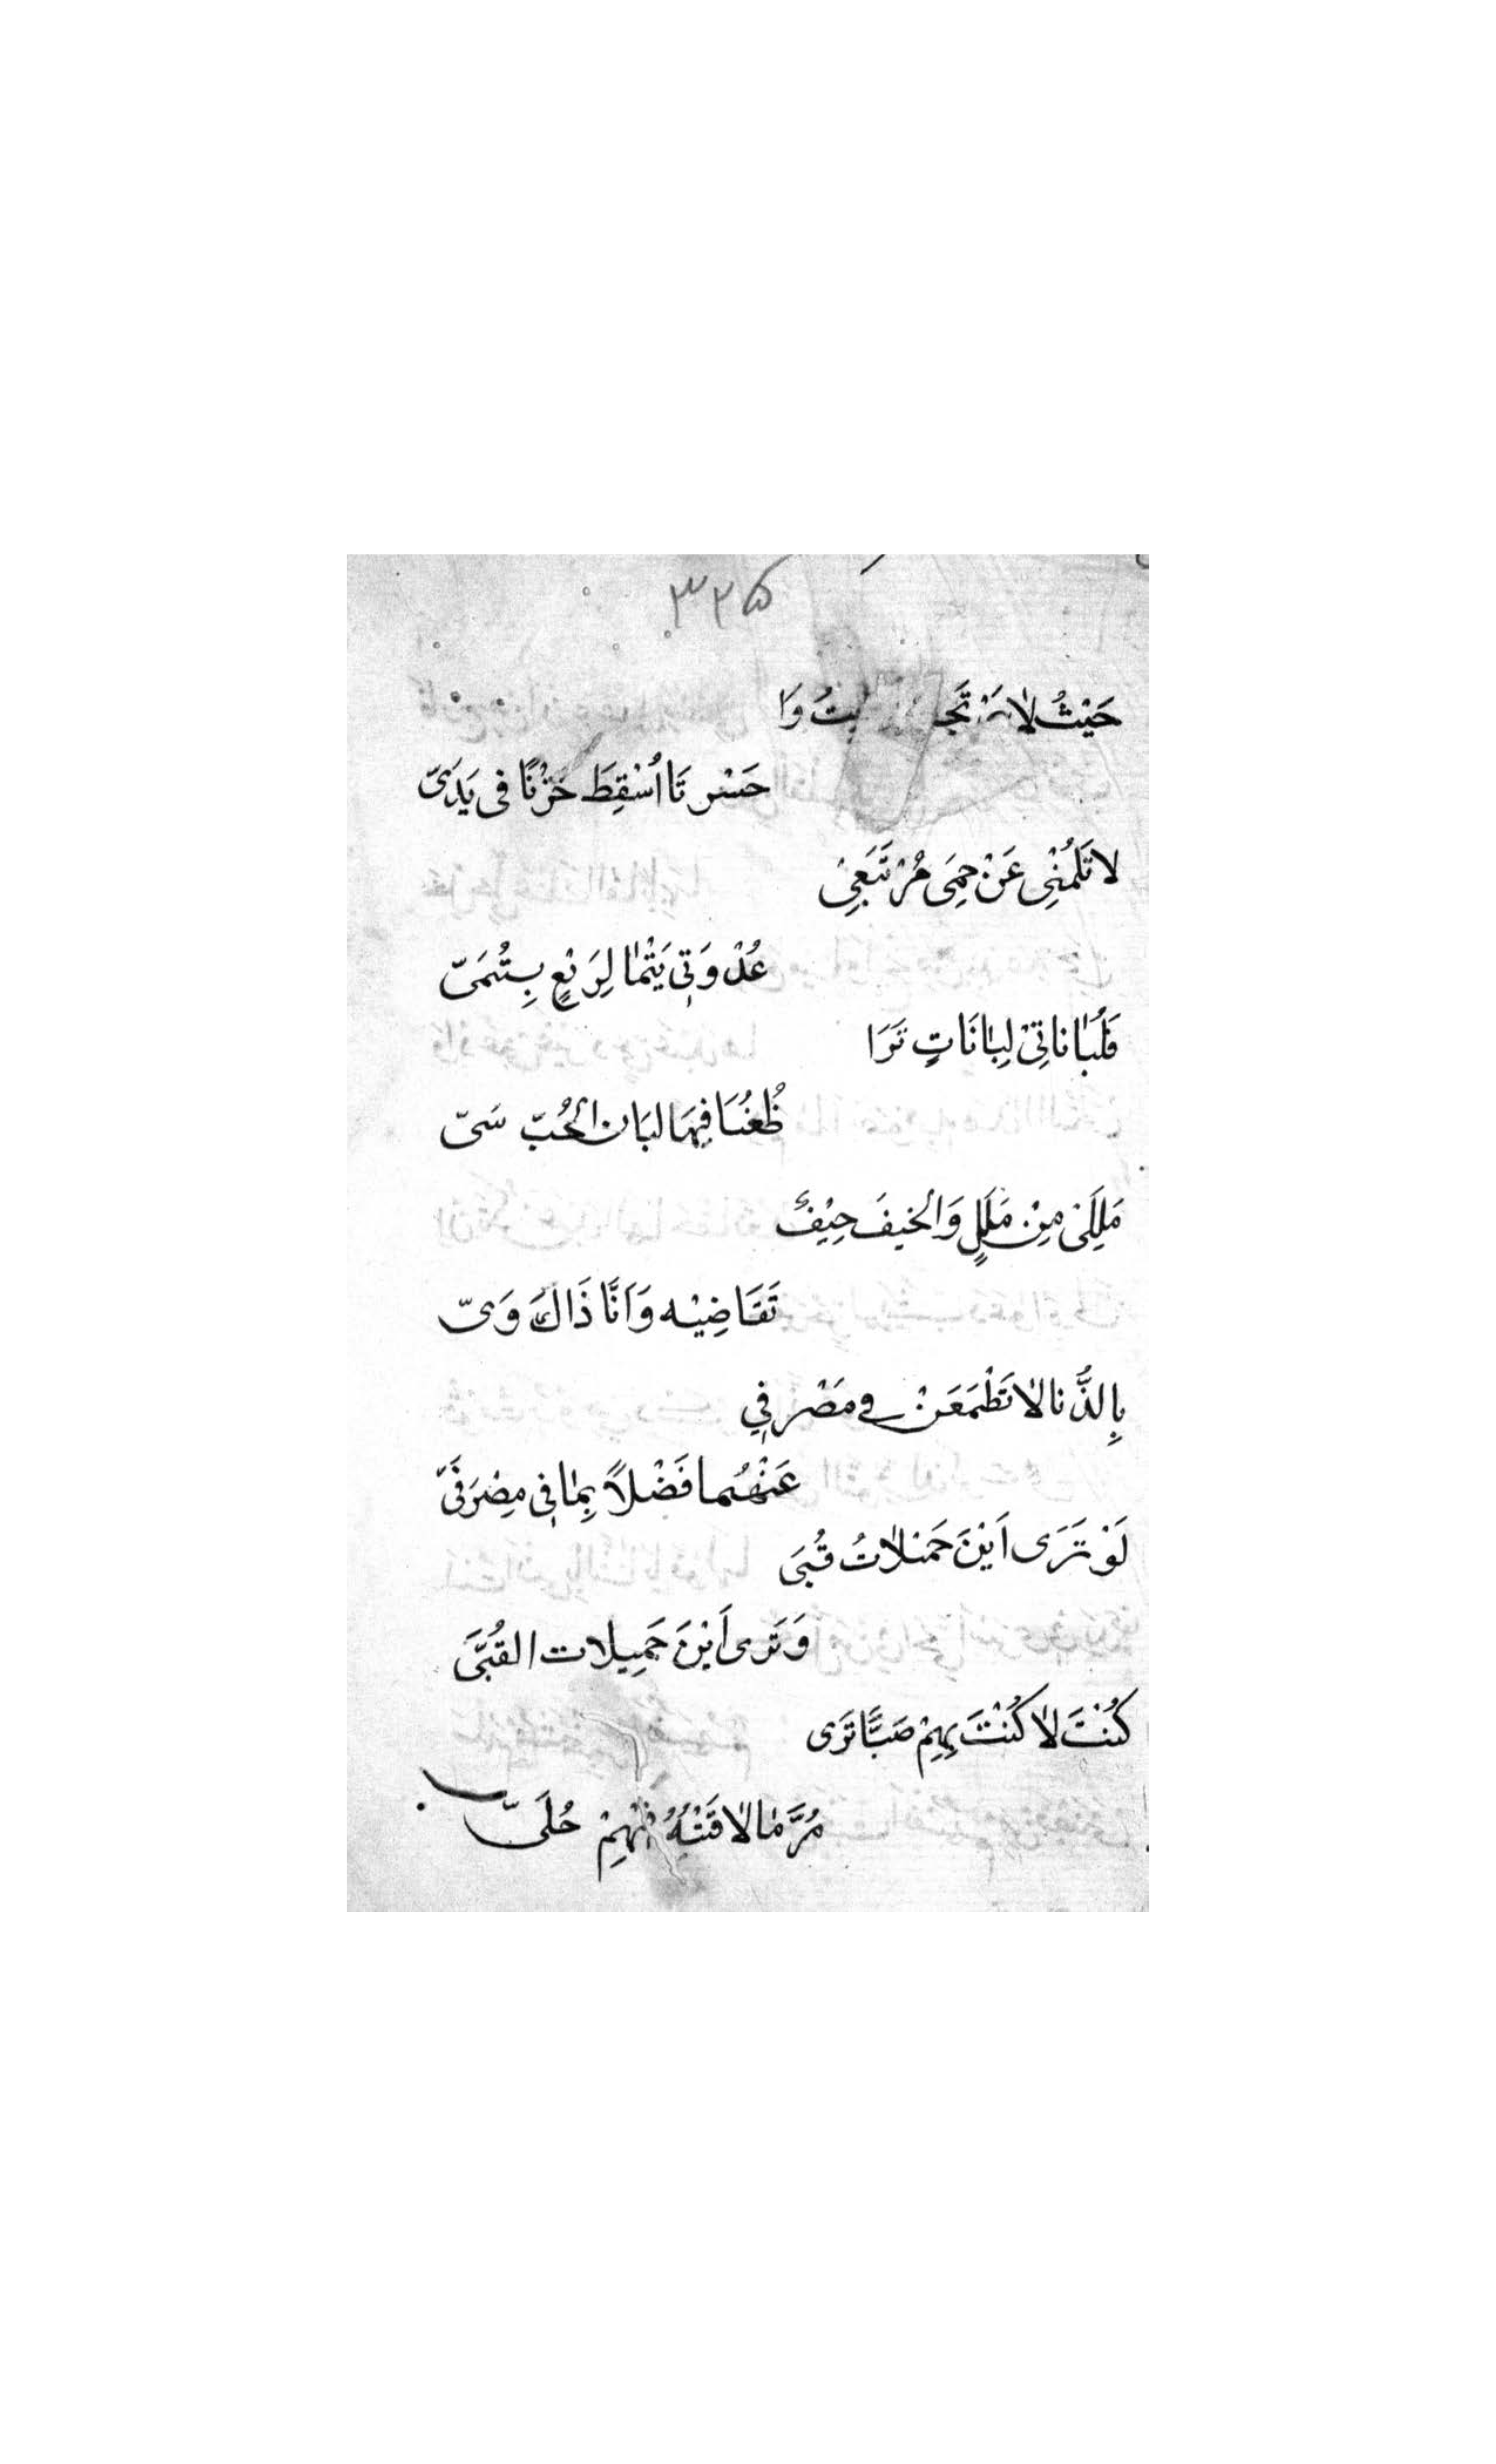 ٣٢٥
حَيْثُ لَا تَجـ ـتُ وَا
حَسْرَتَا اُسْقِطَ حُزْنًا فى يَدَىّ
لا تَلُمْنِى عَنْ حِمَى مُرْتَبَعِىْ
عُدْوَتِى يَتْمَا لِرَبْعٍ بِتُمَىّ
فَلُبَانَاتِىْ لِبَانَاتٍ تَرَا
ظُعُنَا فِيهَا لبَان الحُبّ سَىّ
مَلَلِىْ مِنْ مَلَلٍ وَالخيفَ حِيْفٌ
تَقَاضِيْه وَاَنَّا ذَاكَ وَىّ
بِالدُّنا لَا تَطْمَعَنْ فى مَصْرفِي
عَنْهُما فَضْلاً بِمَا فِى مِصْرَفَىّ
لَوْ تَرَى اَيْنَ خَمِيلَاتُ قُبَى
وَتَرى اَيْنَ جَمِيلات القُبَّىَ
كُنْتَ لَا كُنْتَ بِهِمْ صَبًّا تَرَى
مُرَّ مَا لَاقَتْهُ فِيْهِمْ حُلَىّ